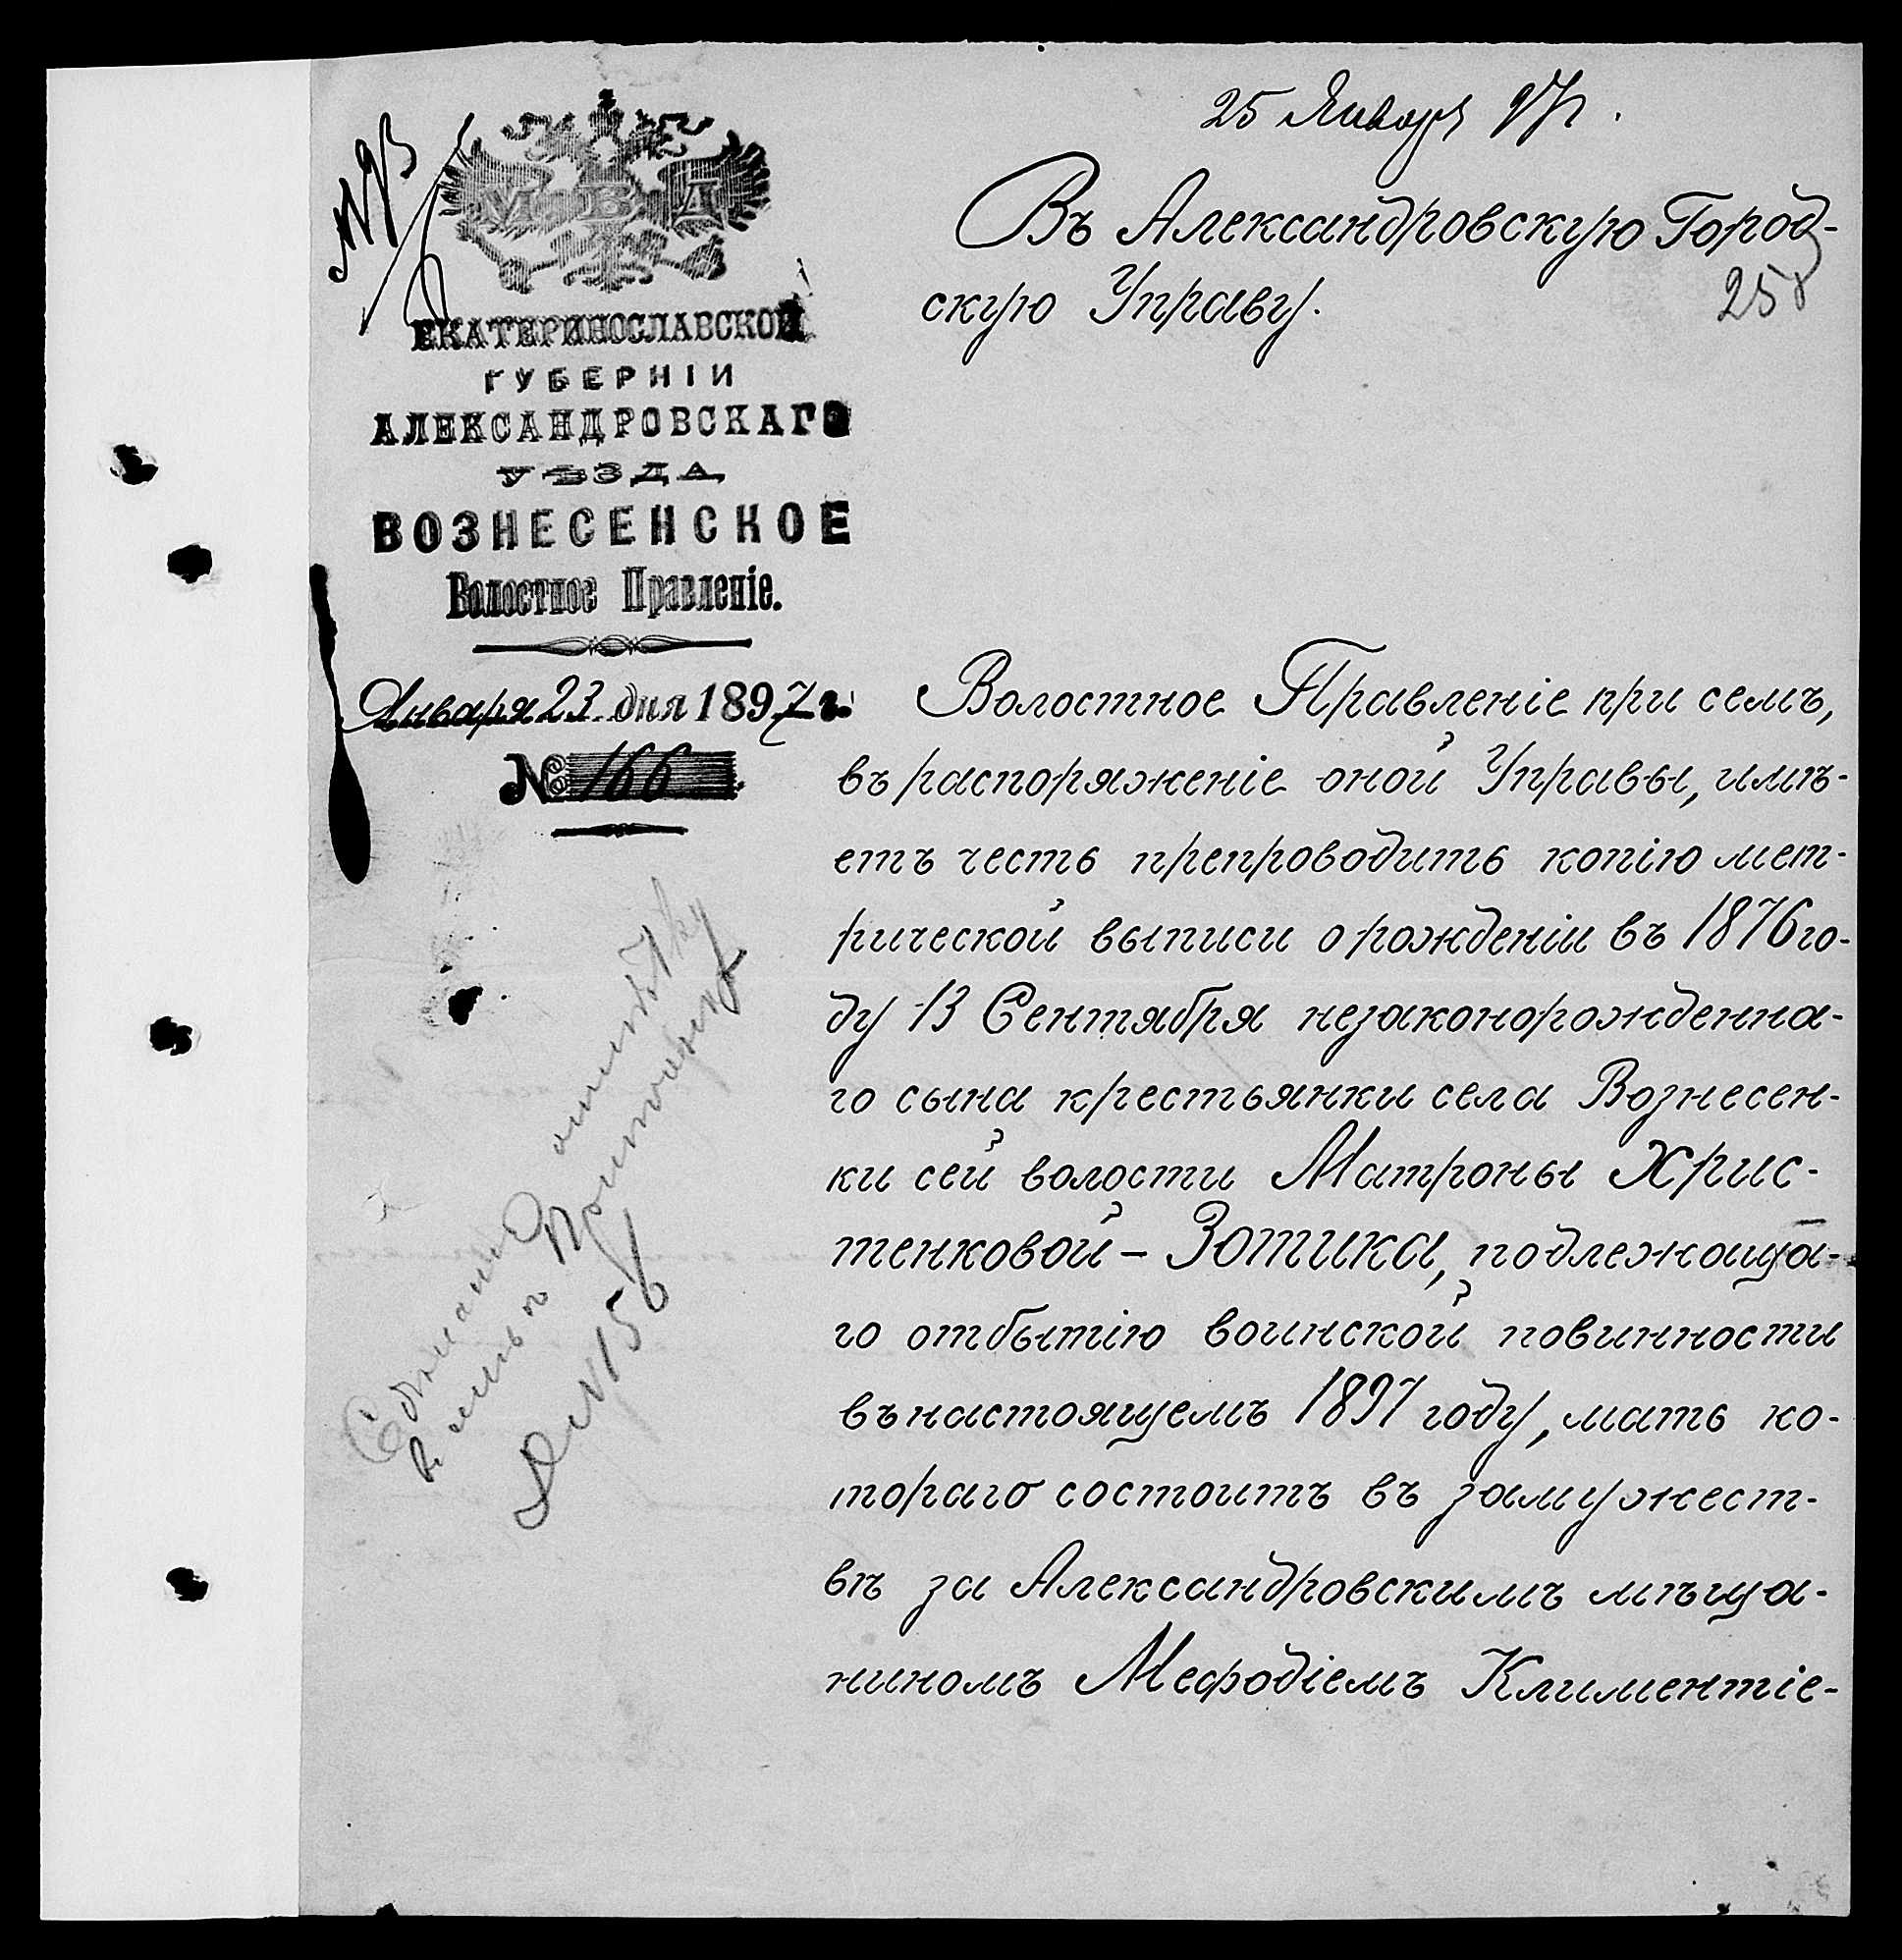 25 Января 97 г.
Въ Александровскую Город-
скую Управу.
258
М В Д
ЕКАТЕРИНОСЛАВСКОЙ
ГУБЕРНІИ
АЛЕКСАНДРОВСКАГО
УѢЗДА
ВОЗНЕСЕНСКОЕ
Волостное Правленіе.
Января 23 дня 1897 г.
№ 166
Волостное Правленіе при семъ,
въ распоряженіе оной Управы, имѣ-
етъ честь препроводить копію мет-
рической выписи о рожденіи въ 1876 го-
ду 13 Сентября незаконорожденна-
го сына крестьянки села Вознесен-
ки сей волости Матроны Хрис-
тенковой – Зотика, подлежаща-
го отбытію воинской повинности
въ настоящемъ 1897 году, мать ко-
тораго состоитъ въ замужест-
вѣ за Александровскимъ мѣща-
ниномъ Мефодіемъ Климентіе-